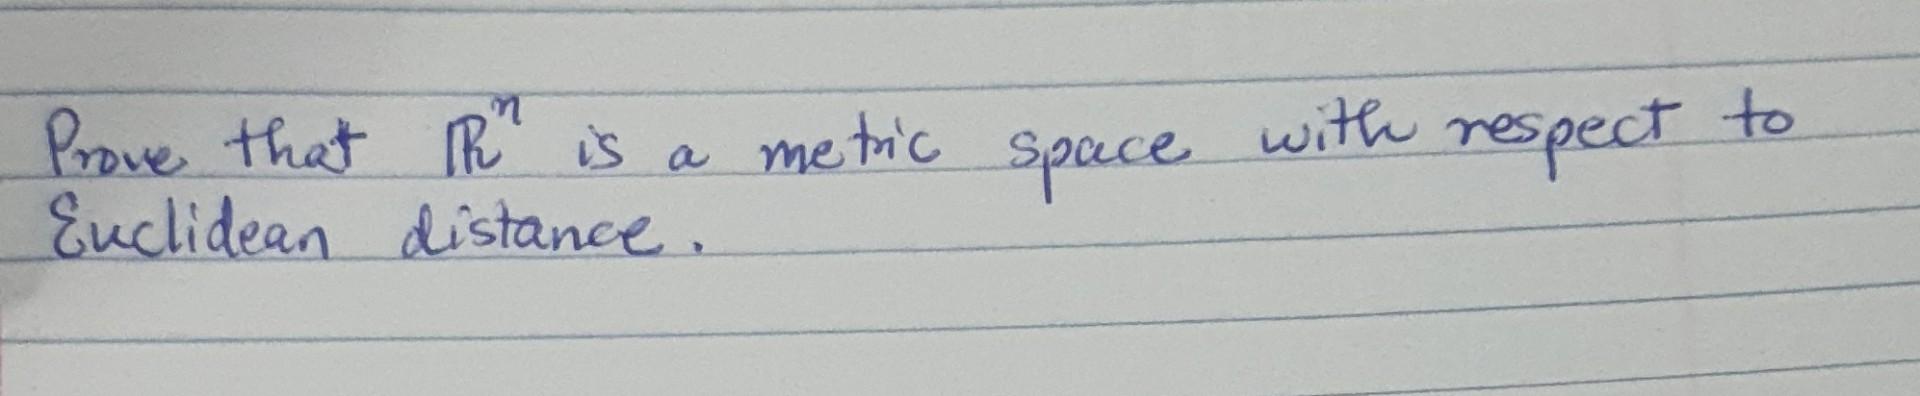 Prove that ℝⁿ is a metric space with respect to
Euclidean distance.